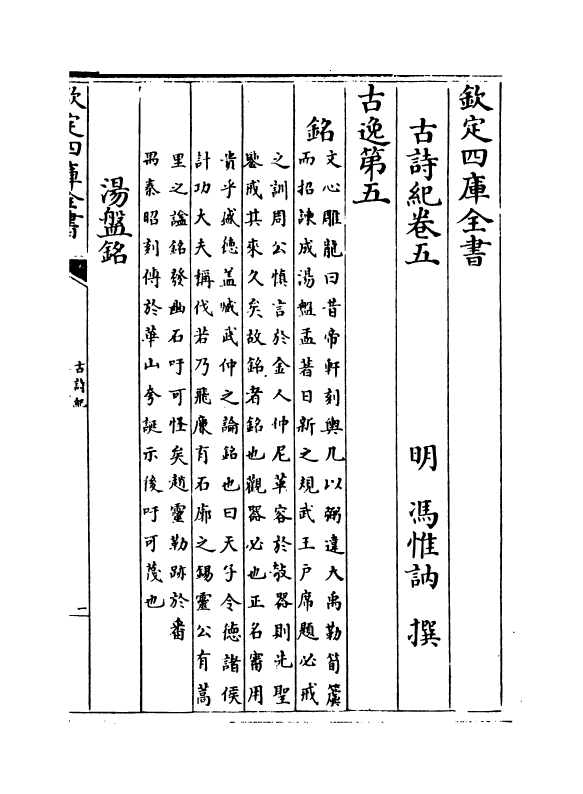 欽定四庫全書
古詩紀卷五
明 馮惟訥 撰
古逸第五
銘
文心雕龍曰昔帝軒刻輿几以弼違大禹勒筍簴
而招諫成湯盤盂著日新之規武王户席題必戒
之訓周公慎言於金人仲尼革容於欹器則先聖
鑒戒其來久矣故銘者銘也觀器必也正名審用
貴乎盛德蓋臧武仲之論銘也曰天子令德諸侯
計功大夫稱伐若乃飛廉有石廓之錫靈公有蒿
里之諡銘發幽石吁可怪矣趙靈勒跡於番
吾秦昭刻傳於華山夸誕示後吁可茂也
湯盤銘
欽定四庫全書
古詩紀
一